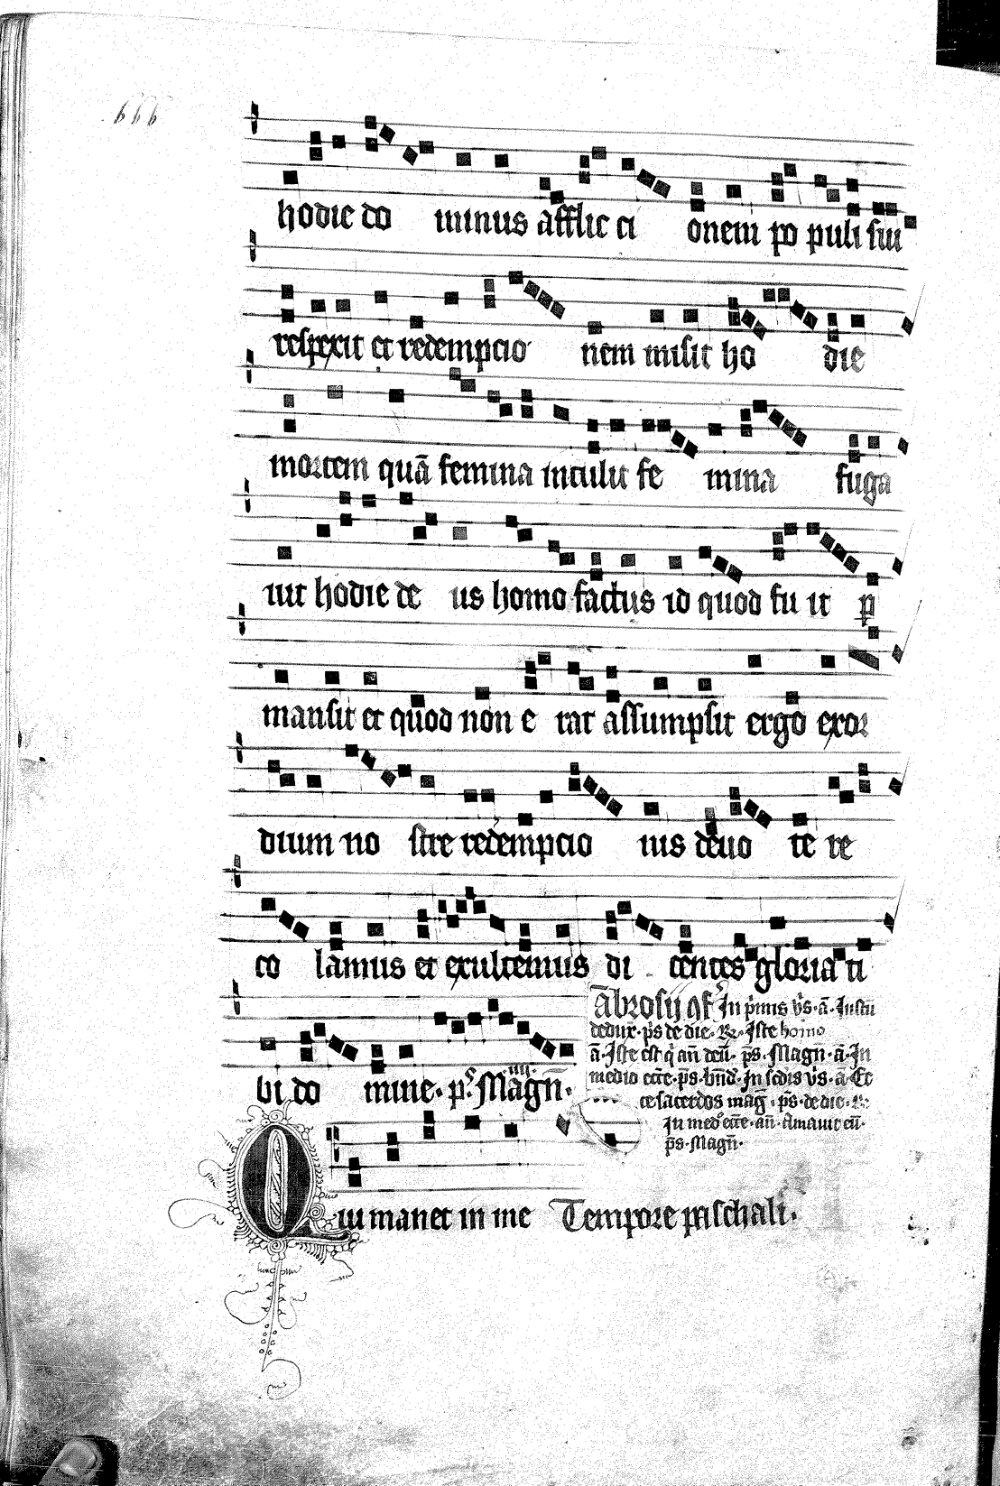 666
hodie do minus afflic ci onem po puli sui
respexit et redempcio nem misit ho die
mortem quā femina intulit fe mina fuga
uit hodie de us homo factus id quod fu it p
mansit et quod non e rat assumpsit ergo exor
dium no stre redempcio nis deuo te re
co lamus et exultemus di centes gloria ti
bi do mine. ps. Magn̄.
Ābrosij
In p̄mis v̄s. ā. Iustū
dedux. p̄s de die. R. Iste homo
ā. Iste est q̄ an̄ deū. p̄s. Magn̄. ā. In
medio ecc̄e. p̄s. bn̄d. In scd̄is v̄s. ā. Ec
ce sacerdos maḡ. p̄s. de die. R.
In med̊ ecc̄e. an̄. Amauit eū.
p̄s. Magn̄.
Qui manet in me Tempore paschali.